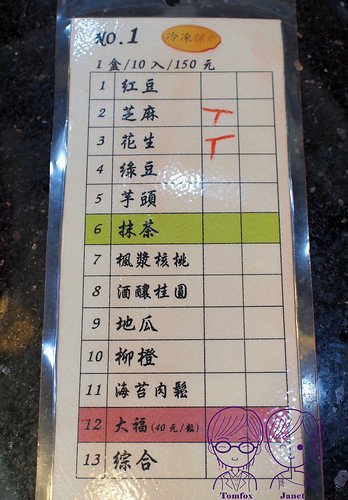 NO.1
冷凍保
1盒/10入/150元
1 紅豆
2 芝麻
3 花生
4 綠豆
5 芋頭
6 抹茶
7 楓漿核桃
8 酒釀桂圓
9 地瓜
10 柳橙
11 海苔肉鬆
12 大福(40元/粒)
13 綜合
Tomfox Janet